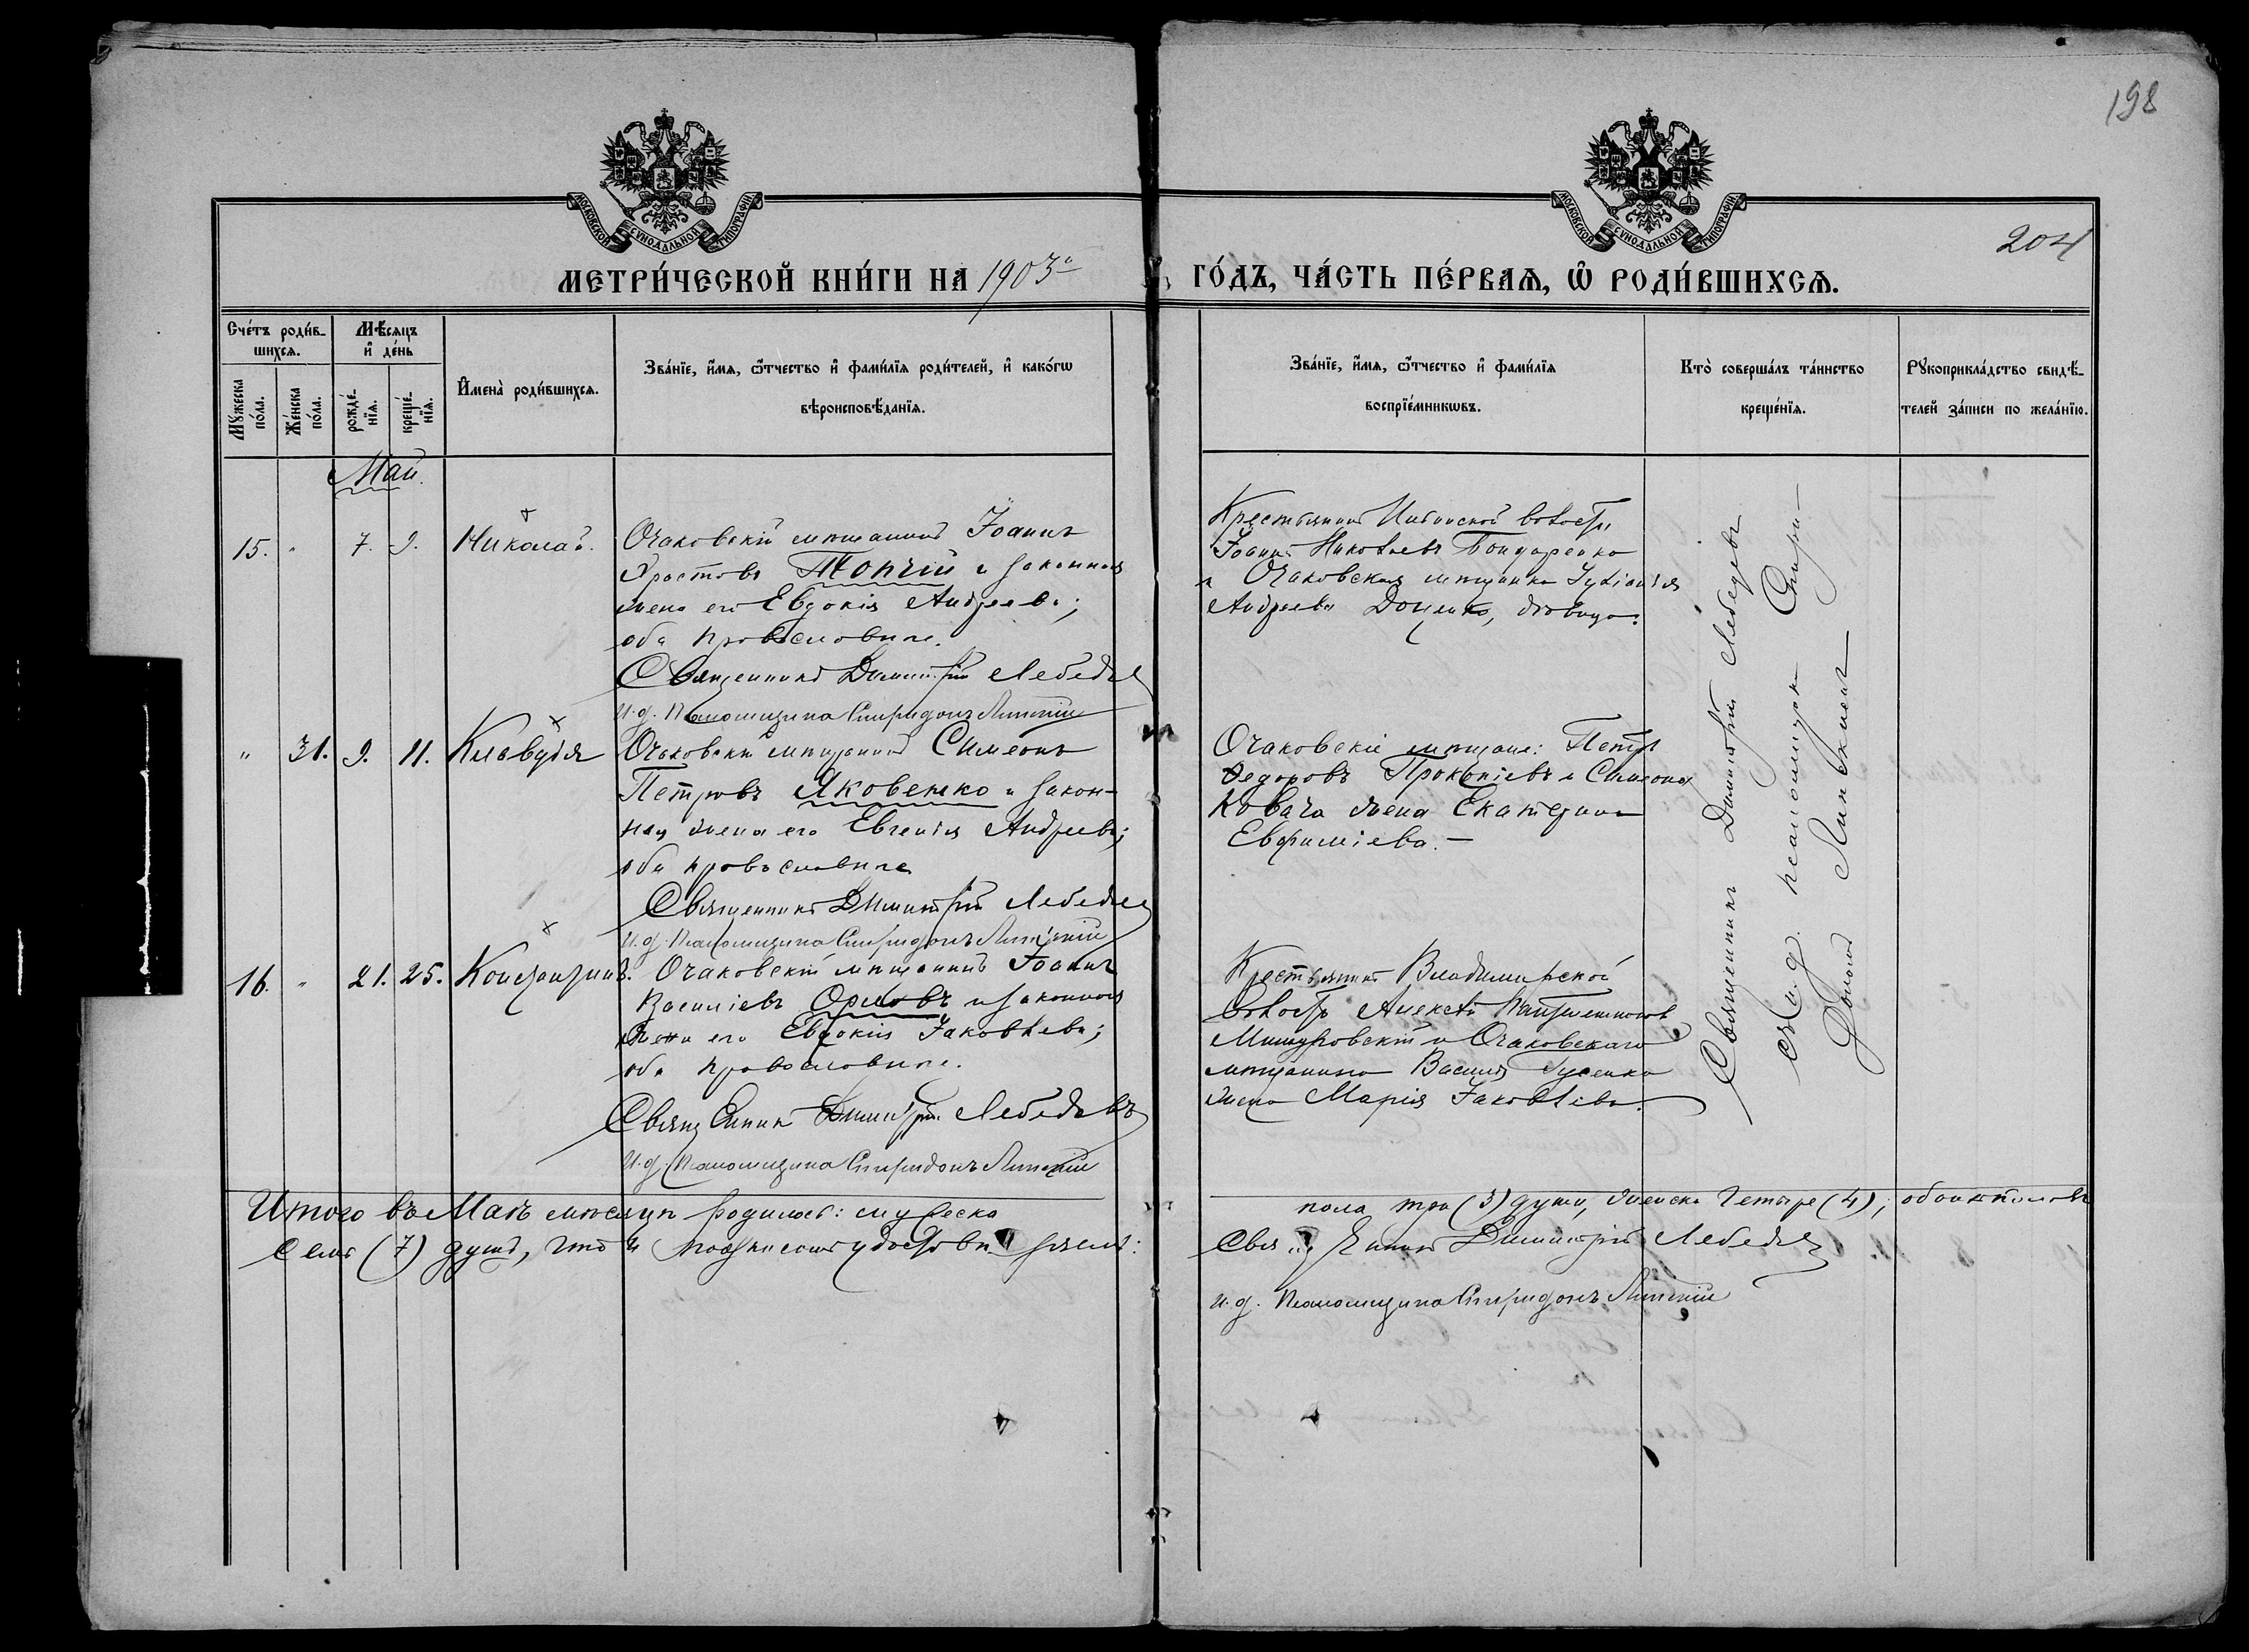 198
МОСКОВСКОЙ СѴНОДАЛЬНОЙ ТИПОГРАФІИ
МОСКОВСКОЙ СѴНОДАЛЬНОЙ ТИПОГРАФІИ
204
МЕТРИ́ЧЕСКОЙ КНИ́ГИ НА 1903й
ГО́ДЪ, ЧА́СТЬ ПЕ́РВАѦ, Ѡ҆ РОДИ́ВШИХСѦ.
Сче́тъ роди́в-
шихсѧ.
Мѣ́сяцъ
и҆ де́нь
Мꙋ́жеска
по́ла.
Же́нска
по́ла.
рожде́-
нїѧ.
креще́-
нїѧ.
И҆мена̀ роди́вшихсѧ.
Зва́нїе, и҆́мѧ, ѻ҆́тчество и҆ фами́лїѧ роди́телей, и҆ како́гѡ
вѣроисповѣ́данїѧ.
Зва́нїе, и҆́мѧ, ѻ҆́тчество и҆ фами́лїѧ
воспрїе́мникѡвъ.
Кто̀ соверша́лъ та́инство
креще́нїѧ.
Рꙋкоприкла́дство свидѣ́-
телей за́писи по жела́нїю.
Май.
15. " 7. 9. Николай.
Очаковскій мѣщанинъ Іоаннъ
Топчій и законная
жена его Евдокія Андреева;
оба православные.
Священникъ Димитрій Лебедевъ
И. д. Псаломщика Спиридонъ Липскій
Крестьянинъ волости
Іоаннъ Николаевъ Бондаренко
и Очаковская мѣщанка Іуліанія
Андреева Доценко, дѣвица.
" 31. 9. 11. Клавдія
Очаковскій мѣщанинъ Симеонъ
Петровъ Яковенко и закон-
ная жена его Евгенія Андреева;
оба православные
Священникъ Димитрій Лебедевъ
И. д. Псаломщика Спиридонъ Липскій
Очаковскіе мѣщане: Петръ
Федоровъ Прокопіевъ и Симеона
Ковача жена Екатерина
Евфиміева.—
16. " 21. 25. Константинъ.
Очаковскій мѣщанинъ Іоаннъ
Василіевъ Орловъ и законная
жена его Евдокія Іаковлева;
оба православные.
Священникъ Димитрій Лебедевъ
И. д. Псаломщика Спиридонъ Липскій
Крестьянинъ Владимирской
волости Алексѣй
и Очаковскаго
мѣщанина Василія Гусенко
жена Марія Іаковлева.
Священникъ Димитрій Лебедевъ
съ и. д. псаломщика Спири-
дономъ Липскимъ
Итого въ Маѣ мѣсяцѣ родилось: мужеска
пола три (3) души, женска четыре (4), обоихъ половъ
семь (7) душъ, что и подписомъ удостовѣряемъ:
Священникъ Димитрій Лебедевъ
И. д. Псаломщика Спиридонъ Липскій